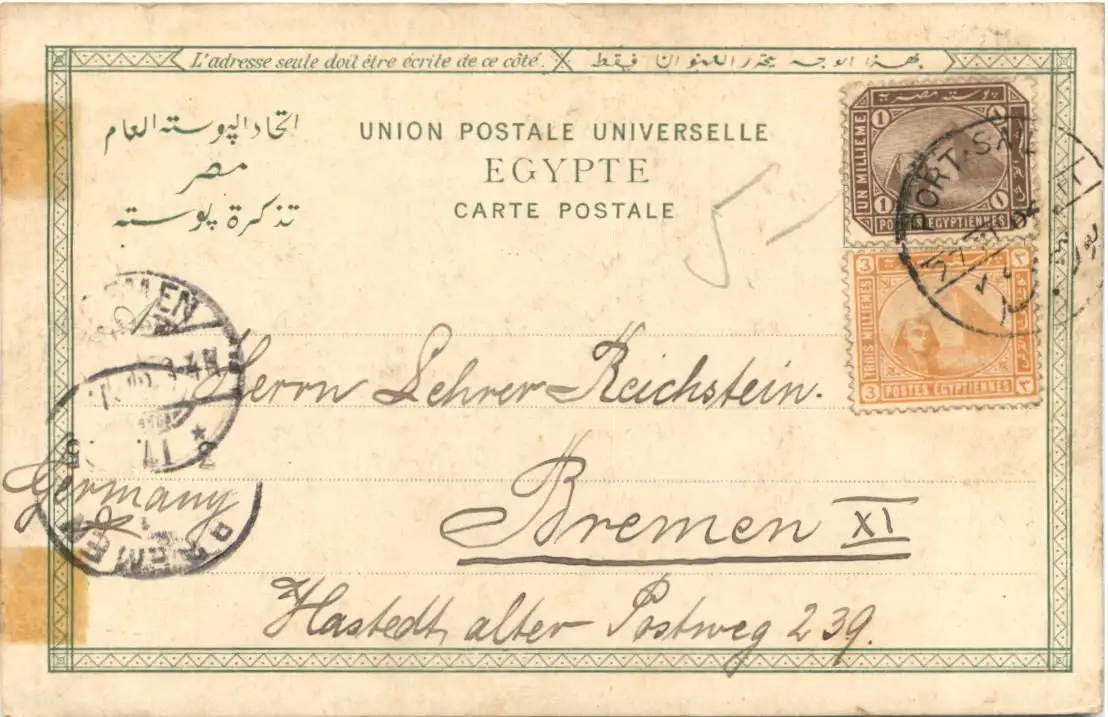 L'adresse seule doit être écrite de ce côté. بهذا الوجه يحرر العنوان فقط
اتحاد البوسته العام
مصر
تذكرة بوسته
UNION POSTALE UNIVERSELLE
EGYPTE
CARTE POSTALE
5.-
بوسته مصرية
1 1
UN MILLIEME
1 1
POSTES EGYPTIENNES
PORT-SAI
27
3
TROIS MILLIEMES
3 POSTES EGYPTIENNES ٣
EMEN
Herrn Lehrer Reichstein.
2
Germany
Bremen XI
BREMEN
Hastedt, alter Postweg 239.